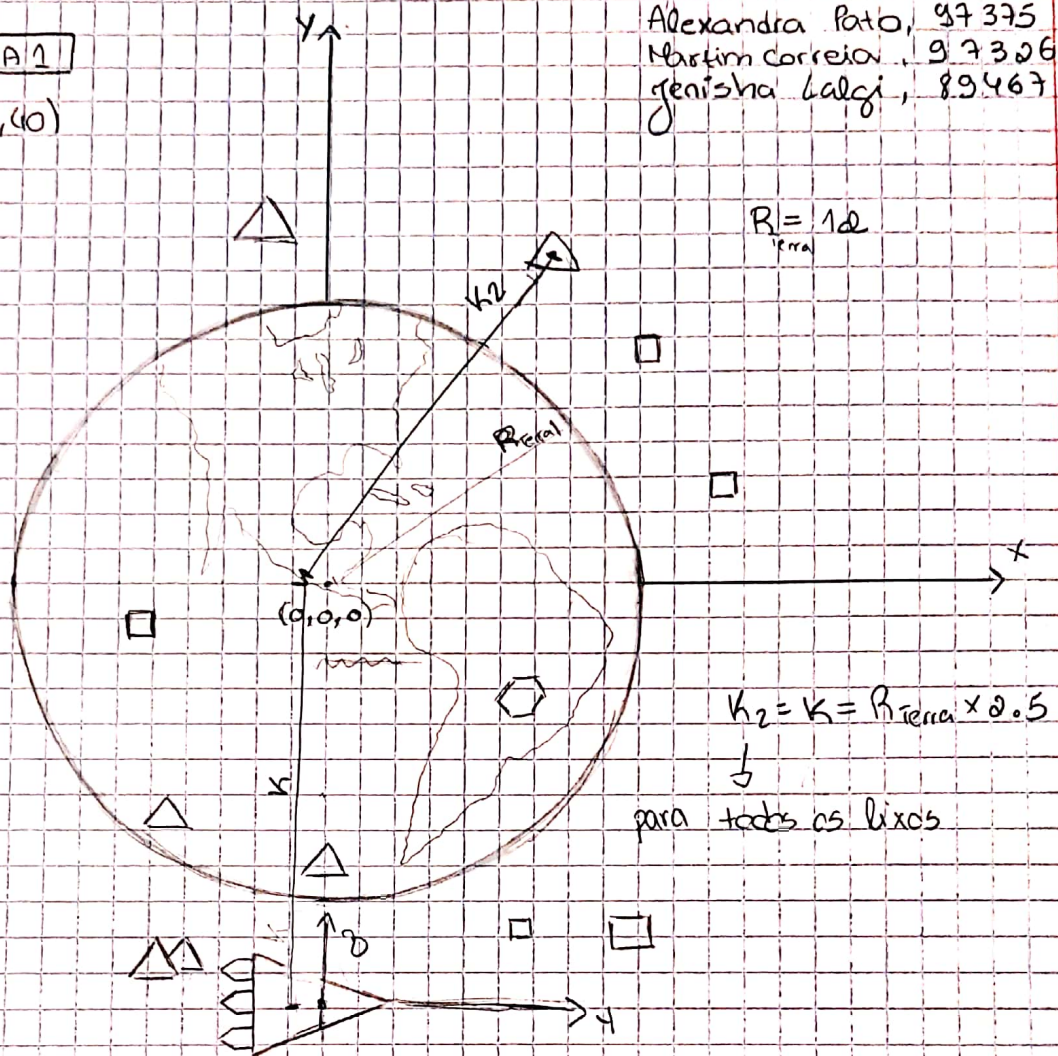 A1
,40)
Alexandra Pato, 97375
Martim Correia, 97326
Jenisha Lalgi, 89467
Y
R Terra = 12
K2
RTerra
X
(0,0,0)
K2 = K = RTerra × 2.5
K
para todos os lixos
K